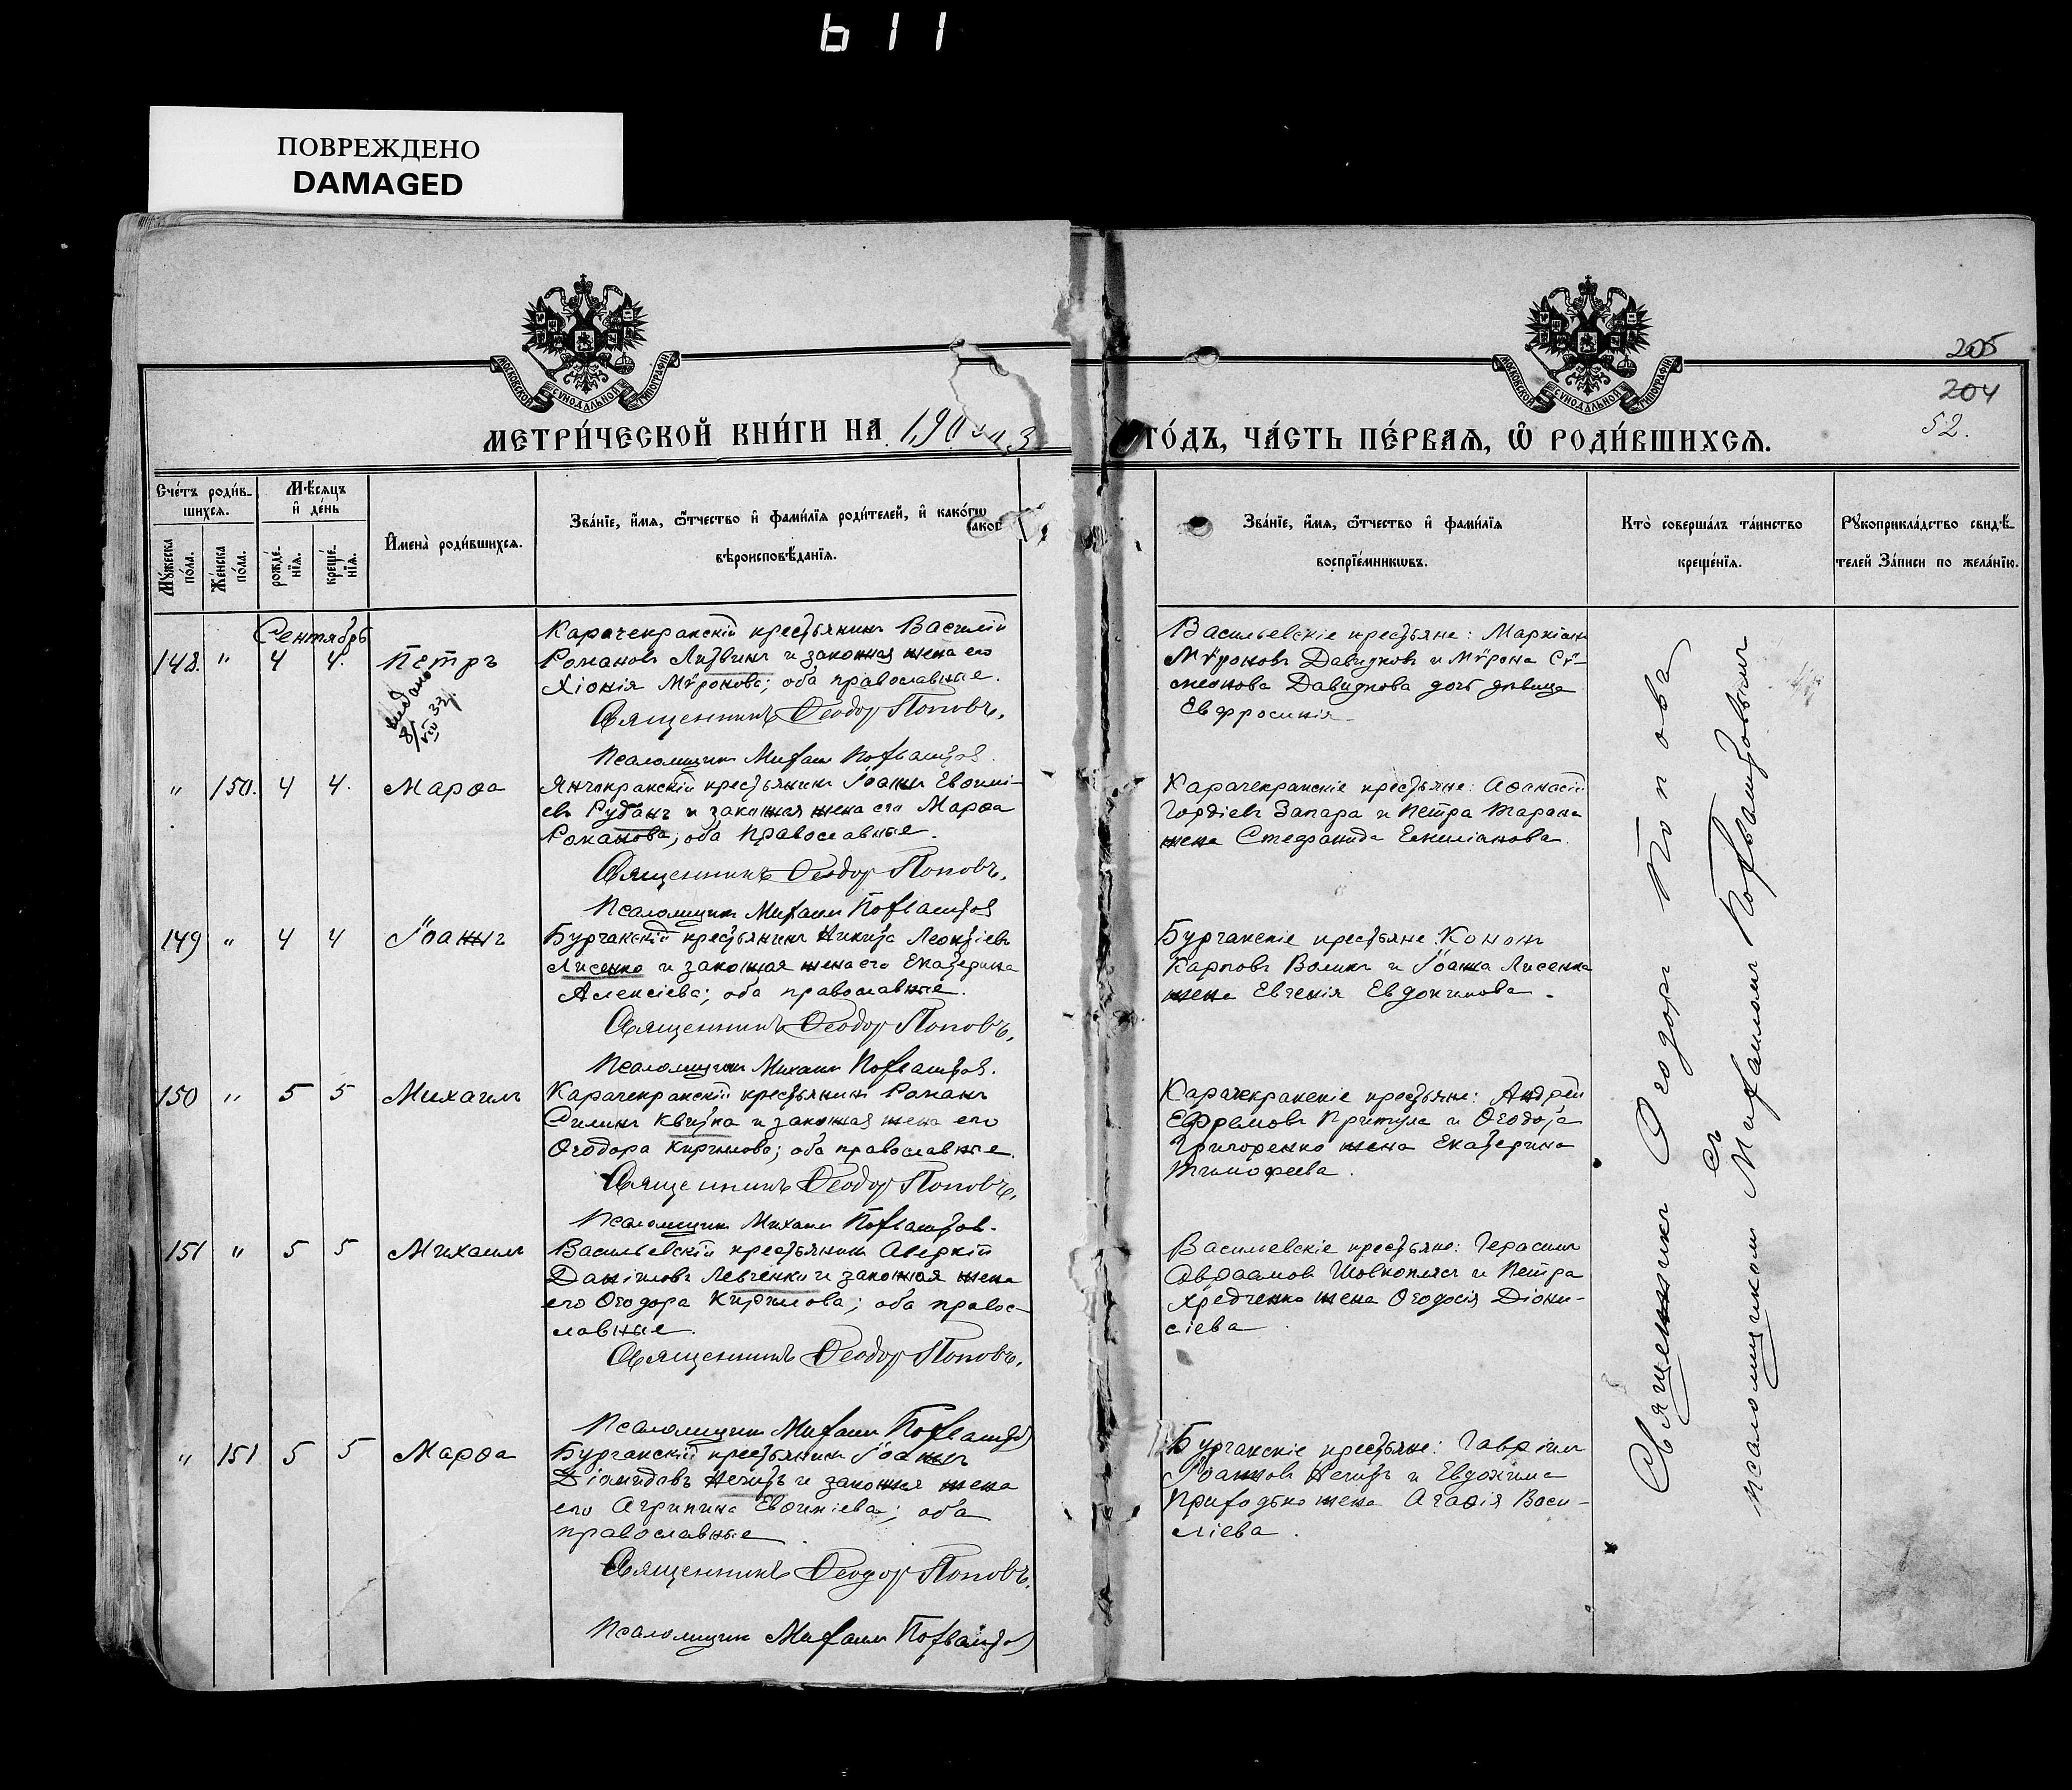 611
ПОВРЕЖДЕНО
DAMAGED
МОСКОВСКОЙ СѴНОДАЛЬНОЙ ТИПОГРАФІИ
МОСКОВСКОЙ СѴНОДАЛЬНОЙ ТИПОГРАФІИ
205
204
52.
МЕТРИ́ЧЕСКОЙ КНИ́ГИ НА 190 3
ГО́ДЪ, ЧА́СТЬ ПЕ́РВАЯ, Ѡ РОДИ́ВШИХСЯ.
Сче́тъ роди́в-
шихся.
Мѣ́сяцъ
и҆ де́нь
Му́жеска
по́ла.
Же́нска
по́ла.
рожде́-
нїя.
креще́-
нїя.
И҆мена̀ роди́вшихся.
Зва́нїе, и҆́мя, ѻ҆́тчество и҆ фами́лїя роди́телей, и҆ како́гѡ
вѣроисповѣ́данїя.
Зва́нїе, и҆́мя, ѻ҆́тчество и҆ фами́лїя
воспрїе́мникѡвъ.
Кто̀ соверша́лъ та́инство
креще́нїя.
Рꙋкоприкла́дство свидѣ́-
телей За́писи по жела́нїю.
Сентябрь
148. " 4 4. Петръ
выдано
8/VIII 32
Карачекракскій крестьянинъ Василій
Романовъ Литвинъ и законная жена его
Хіонія Мѵронова; оба православные.
Священникъ Ѳеодоръ Поповъ.
Псаломщик Михаил
Васильевскіе крестьяне: Маркіанъ
Мѵроновъ Давидковъ и Мѵрона Сѵ-
меонова Давидкова дочь дѣвица
Евфросинія
" 150. 4 4. Марѳа
Янчекракскій крестьянинъ Іоаннъ Евѳимі-
евъ Рубанъ и законная жена его Марѳа
Романова; оба православные.
Священникъ Ѳеодоръ Поповъ.
Псаломщик Михаил
Карачекракскіе крестьяне: Аѳанасій
Гордіевъ Запара и Петра Тарана
жена Стефанида Емиліанова.
149 " 4 4 Іоаннъ
Бурчакскій крестьянинъ Никита Леонтіевъ
Лисенко и законная жена его Екатерина
Алексіева; оба православные.
Священникъ Ѳеодоръ Поповъ.
Псаломщик Михаил
Бурчакскіе крестьяне Кононъ
Карповъ Воликъ и Іоанна Лисенка
жена Евгенія Евдокимова.
150 " 5 5 Михаилъ
Карачекракскій крестьянинъ Романъ
Силинъ Квитка и законная жена его
Ѳеодора Кириллова; оба православные.
Священникъ Ѳеодоръ Поповъ.
Псаломщик Михаил
Карачекракскіе крестьяне: Андрей
Ефремовъ Притула и Ѳеодота
Григоренко жена Екатерина
Тимофеева.
151 " 5 5 Михаилъ
Васильевскій крестьянинъ Аверкій
Даніиловъ Левченко и законная жена
его Ѳеодора Кириллова; оба правос-
лавные.
Священникъ Ѳеодоръ Поповъ.
Псаломщик Михаил
Васильевскіе крестьяне: Герасимъ
Авраамовъ Шовкоплясъ и Петра
Хредченко жена Ѳеодосія Діони-
сіева
" 151 5 5 Марѳа
Бурчакскій крестьянинъ Іоаннъ
Діомидовъ Нечитъ и законная жена
его Агрипина Евѳиміева; оба
православные.
Священникъ Ѳеодоръ Поповъ.
Псаломщик Михаил
Бурчакскіе крестьяне: Гавріилъ
Іоанновъ Нечитъ и Евдокима
Приходько жена Агаѳія Васи-
ліева.
Священникъ Ѳеодоръ Поповъ
съ
псаломщикомъ Михаиломъ